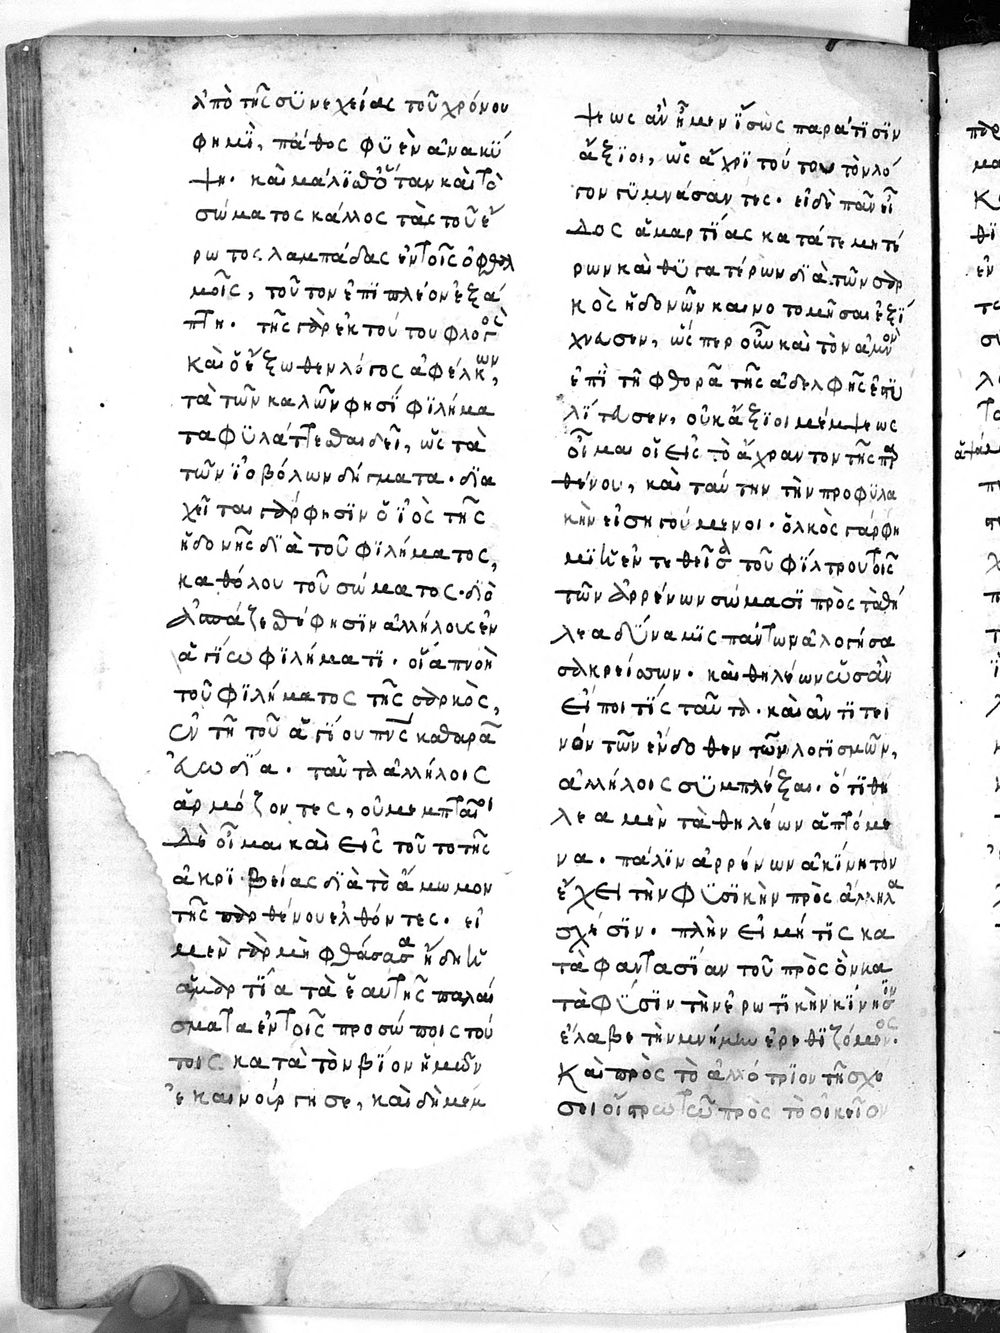 ἀπὸ τῆς συνεχείας τοῦ χρόνου
φημϊ, πάθος φϋὲν ἀνακϋ
ψη. καὶ μάλϊσθ' ὅταν καὶ τὸ
σώματος κάλλος τὰς τοῦ ἔ
ρωτος λαμπάδας ἐν τοῖς ὀφθαλ
μοῖς, τοῦτον ἐπϊπλέον ἐξά
πτη. τῆς γὰρ ἐκ τούτου φλογὸς
καὶ ὁ ἔξωθεν λόγος ἀφέλκων,
τὰ τῶν καλῶν φησί φϊλήμα
τα φϋλάττεσθαι δεῖ, ὡς τὰ
τῶν ϊοβόλων δήγματα. δϊα
χεῖται γὰρ φησϊν ὁ ϊὸς τῆς
ἡδονῆς δϊὰ τοῦ φϊλήματος,
καθόλου τοῦ σώματος. δϊὸ
ἀσπάζεσθέ φησϊν ἀλλήλους ἐν
ἁγίω φϊλήματϊ. οἷα πνοὴ
τοῦ φϊλήματος τῆς σαρκὸς,
ἐν τῆ τοῦ ἁγίου πνς καθαρᾶ
εὐωδϊα. ταῦτα ἀλλήλοις
ἁρμόζοντες, οὐ μεμπταῖοι
δὲ οἶμαι καὶ εἰς τοῦτο τῆς
ἀκρϊβείας δϊὰ τὸ ἄμωμον
τῆς παρθένου ἐλθόντες. εἰ
μὲν γὰρ μὴ φθάσασα ἤδη ἡ
ἁμαρτϊα τὰ ἑαυτῆς παλαί
σματα ἐν τοῖς προσώποις τού
τοις κατὰ τὸν βϊον ἡμῶν
ἐκαινούργησε, καὶ δὴ μέμ
ψεως ἂν ἦμεν ἴσως παρά τϊσϊν
ἄξϊοι, ὡς ἄχρϊ τούτου τὸν λό
γον γϋμνάσαντες. εἰ δὲ πᾶν εἶ
δος ἁμαρτϊας κατά τε μητέ
ρων καὶ θϋγατέρων δϊὰ τῶν σαρ
κὸς ἡδονῶν καινοτομῆσαι ἐξϊ
χνωσεν, ὥσπερ οὖν καὶ τὸν ἀμνὸν
ἐπϊ τῆ φθορᾶ τῆς ἀδελφῆς ἐπϋ
λϊτωσεν, οὐκ ἄξϊοι μέμψεως
οἶμαι οἱ εἰς τὸ ἄχραντον τῆς παρ
θένου, καὶ ταύτην τὴν προφϋλα
κὴν εἰσηγούμενοι. ὁλκὸς γάρ φη
μϊ ἡ ἐντεθεῖσα τοῦ φϊλτρου τοῖς
τῶν ἀρρένων σώμασϊ πρὸς τὰ θή
λεα δϋναμϊς πάντων ἀλογήσα
σα κρείσσων. καὶ θηλέων ὡσὰν
εἴποι τϊς ταῦτα. καὶ ἀντϊτεί
νων τῶν ἔνδοθεν τῶν λογϊσμῶν,
ἀλλήλοις σϋμπλέξαι. ὅτϊ θή
λεα μὲν τὰ θηλέων ἁπτόμε
να. πάλϊν ἀρρένων ἀκίνητον
ἔχει τὴν φϋσϊκὴν πρὸς ἄλληλα
σχέσϊν. πλὴν εἰ μή τϊς κα
τὰ φαντασϊαν τοῦ πρὸς ὃν κα
τὰ φϋσϊν τὴν ἐρωτϊκὴν κϊνησϊν
ἔλαβε τὴν μνήμην ἐρεθϊζόμενος.
καὶ πρὸς τὸ ἀλλότρϊον τῆ σχέ
σει οἷ πρωτῶ πρὸς τὸ οἰκεῖον